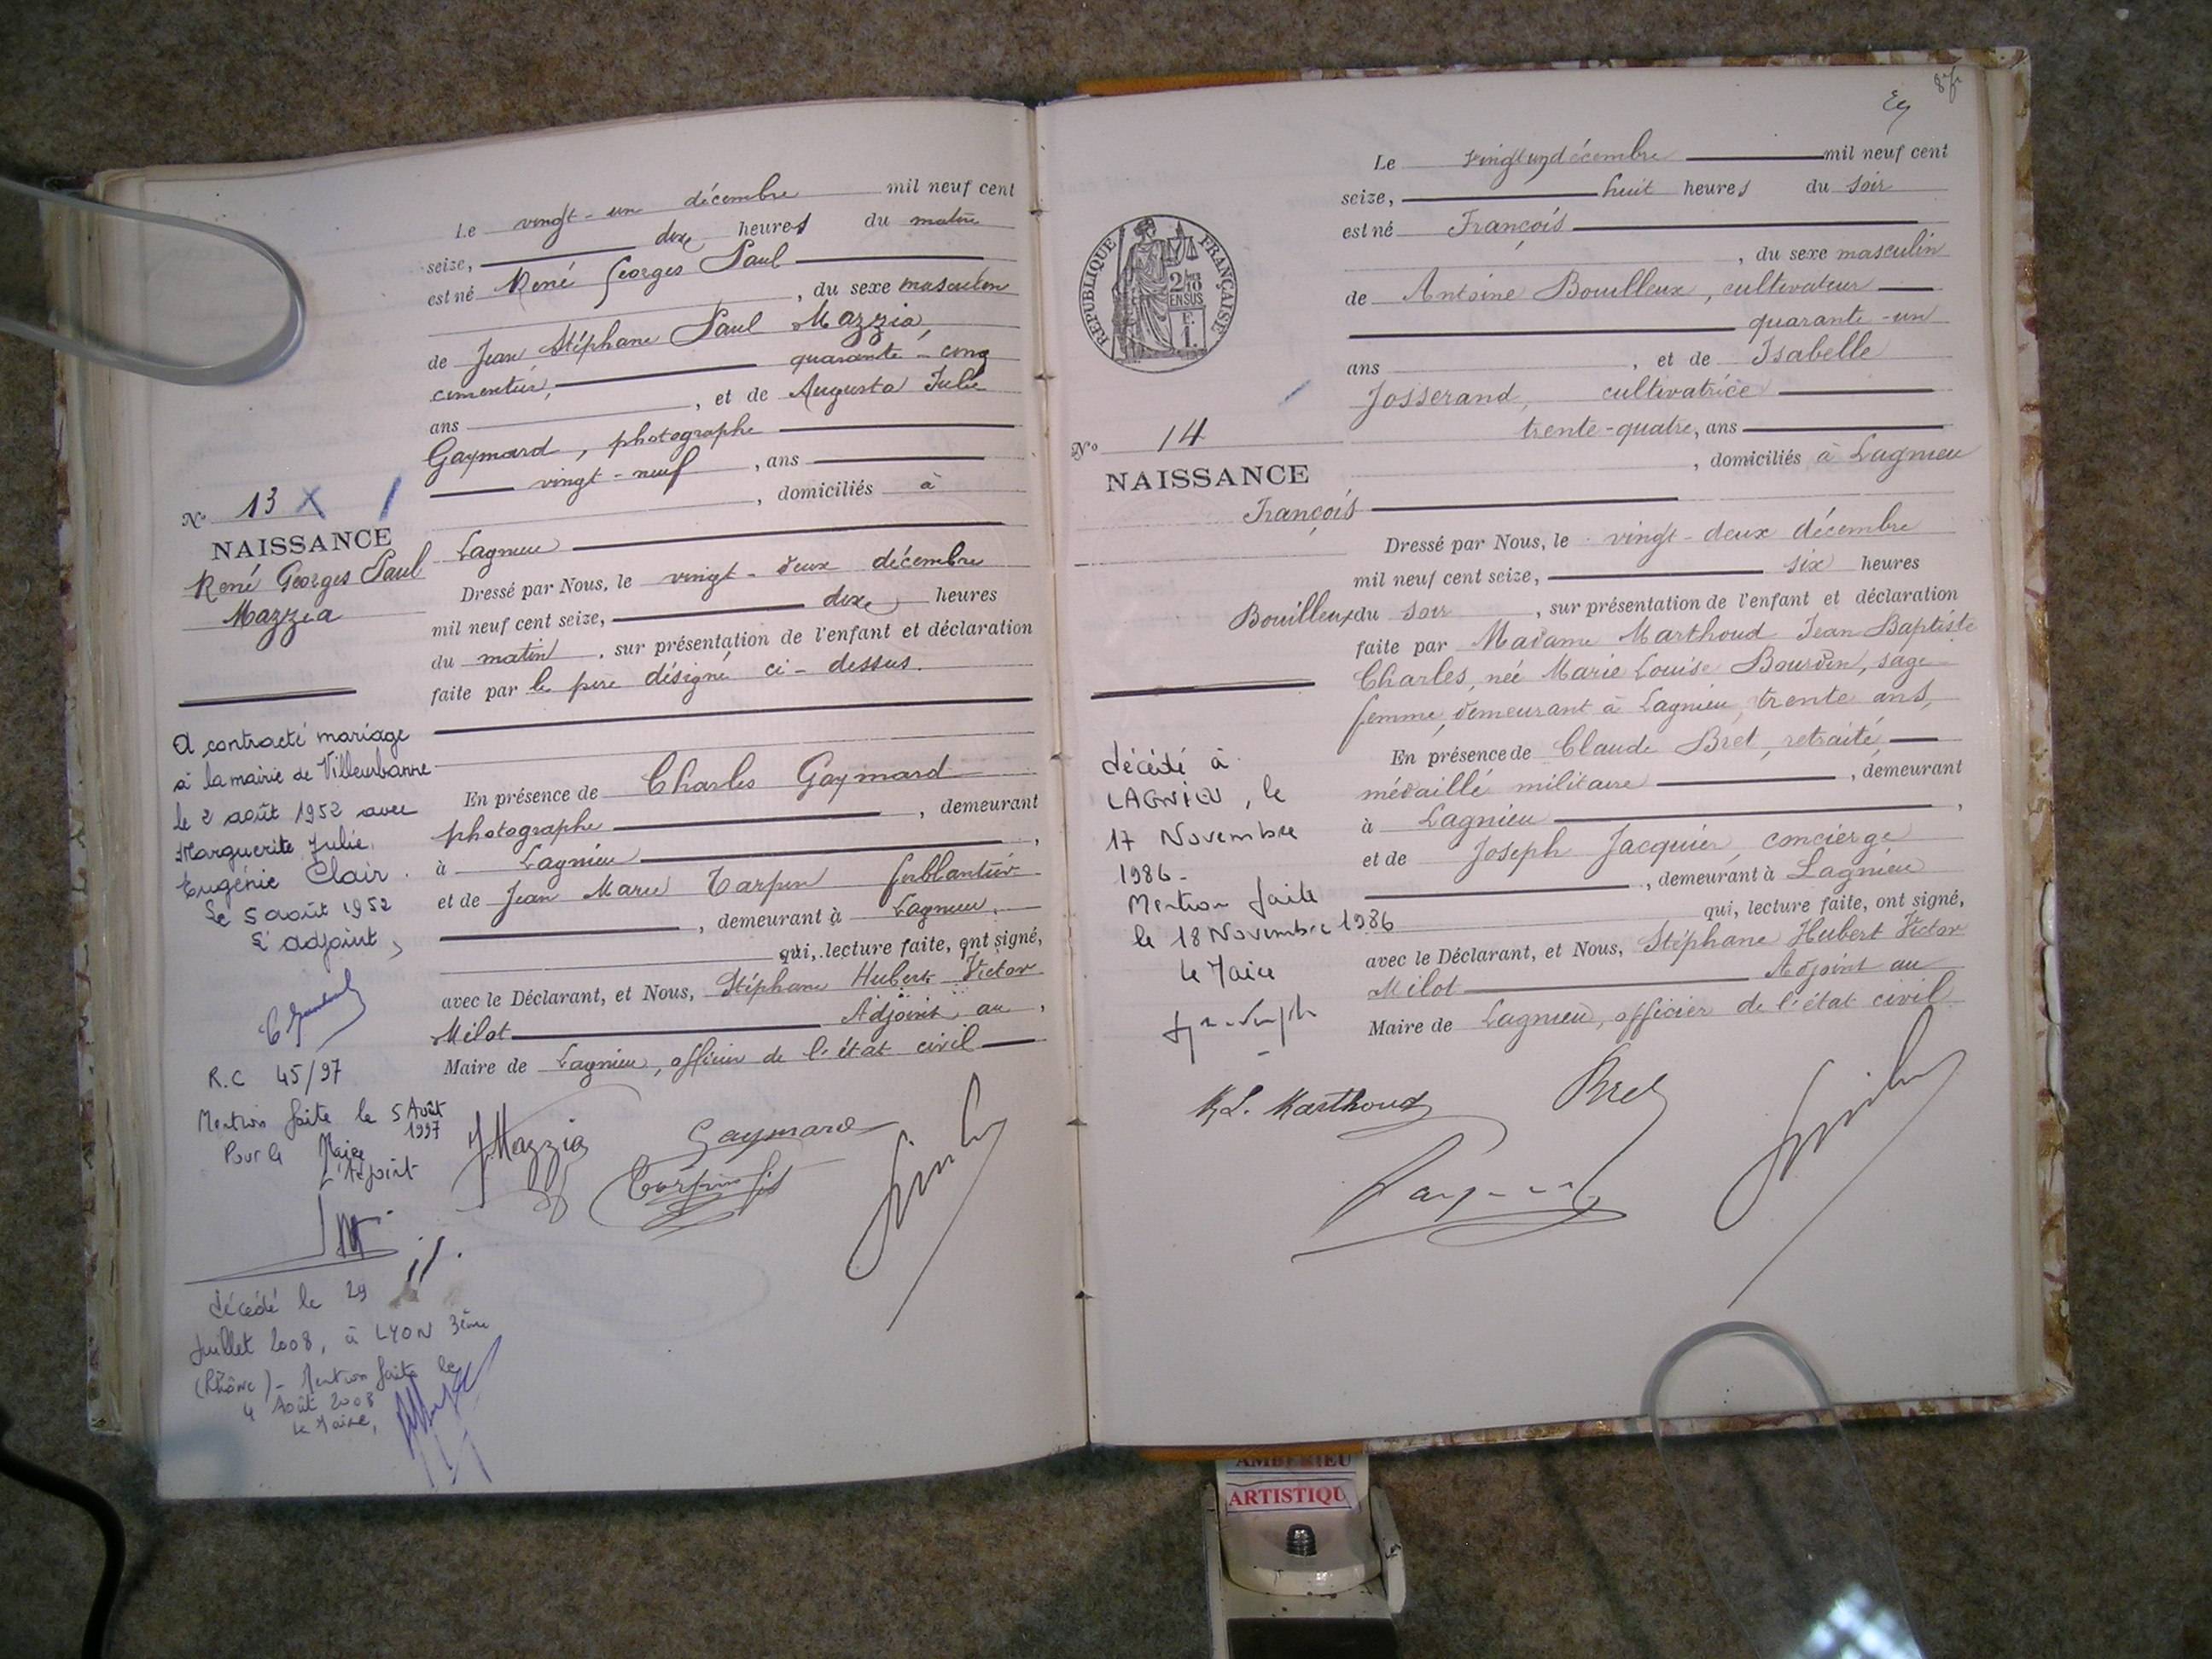 Le vingt-un décembre mil neuf cent
seize, dix heures du matin
est né René Georges Paul
, du sexe masculin
de Jean Stéphane Paul Mazzia,
cimentier, quarante-cinq
ans , et de Augusta Julie
Gaymard, photographe
vingt-neuf , ans
, domiciliés à
Lagnieu
Dressé par Nous, le vingt-deux décembre
mil neuf cent seize, dix heures
du matin , sur présentation de l'enfant et déclaration
faite par le père désigné ci-dessus.
En présence de Charles Gaymard
photographe , demeurant
à Lagnieu ,
et de Jean Marie Tarpin ferblantier
, demeurant à Lagnieu,
qui, lecture faite, ont signé,
avec le Déclarant, et Nous, Stéphane Hubert Victor
Milot Adjoint au ,
Maire de Lagnieu, officier de l'état civil
JMazzia
Gaymard
Tarpin fils
N° 13 X
NAISSANCE
René Georges Paul
Mazzia
A contracté mariage
à la mairie de Villeurbanne
le 2 août 1952 avec
Marguerite Julie
Eugénie Clair.
Le 5 août 1952
L'adjoint,
R.C 45/97
Mention faite le 5 Août
1997
Pour le Maire
L'Adjoint
décédé le 29
Juillet 2008, à LYON 3ème
(Rhône) - Mention faite le
4 Août 2008
Le Maire,
Le vingt un décembre mil neuf cent
seize, huit heures du soir
est né François
, du sexe masculin
de Antoine Bouilleux, cultivateur
quarante-un
ans , et de Isabelle
Josserand, cultivatrice
trente-quatre, ans
, domiciliés à Lagnieu
Dressé par Nous, le vingt-deux décembre
mil neuf cent seize, six heures
du soir , sur présentation de l'enfant et déclaration
faite par Madame Marthoud Jean Baptiste
Charles, née Marie Louise Bourdin, sage
femme, demeurant à Lagnieu, trente ans,
En présence de Claude Bret, retraité,
médaillé militaire , demeurant
à Lagnieu ,
et de Joseph Jacquier, concierge
, demeurant à Lagnieu
qui, lecture faite, ont signé,
avec le Déclarant, et Nous, Stéphane Hubert Victor
Milot Adjoint au
Maire de Lagnieu, officier de l'état civil
M.L. Marthoud
Bret
REPUBLIQUE FRANÇAISE
2/10
EN SUS
F.
1.
N° 14
NAISSANCE
François
Bouilleux
décédé à
LAGNIEU, le
17 Novembre
1986 -
Mention faite
le 18 Novembre 1986
Le Maire
AMBERIEU
ARTISTIQU